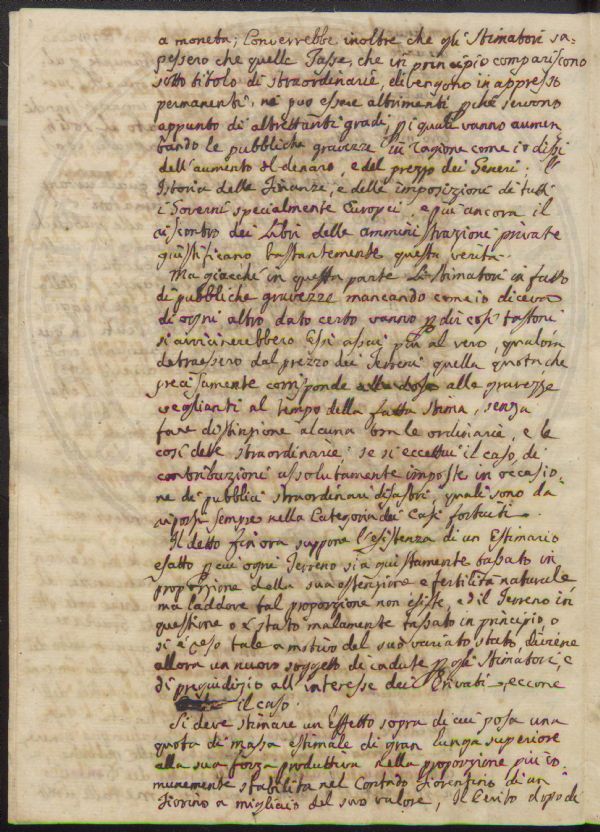 a moneta; Converrebbe inoltre che gli Stimatori sa=
pessero che quelle Tasse, che in principio compariscono
sotto titolo di straordinarie, divengono in appresso
permanenti, ne può essere altrimenti pche servono
appunto di altrettanti gradi, p i quali vanno aumen
tando le pubbliche gravezze in ragione come io dissi
dell'aumento del denaro, e del prezzo dei Generi: l'
Istoria delle Finanze, e delle imposizioni di tutti
i Governi specialmente Europei, e più ancora il
riscontro dei Libri delle amministrazioni private
giustificano bastantemente questa verità.
Ma giacché in questa parte Li Stimatori in fatto
di pubbliche gravezze mancando come io diceva
di ogni altro dato certo vanno p dir così tastoni
si avvicinerebbero Essi assai più al vero, qualora
detraessero dal prezzo dei Terreni quella quota che
precisamente corrisponde alle gravezze
veglianti al tempo della fatta stima, senza
fare distinzione alcuna tra le ordinarie, e le
così dette straordinarie; se si eccettui il caso di
contribuzioni assolutamente imposte in occasio=
ne di pubblici straordinari disastri, quali sono da
riporsi sempre nella Categoria dei Casi fortuiti.
Il detto fin ora suppone l'esistenza di un Estimario
esatto p cui ogni Terreno sia giustamente tassato in
proporzione della sua estensione e fertilità naturale
ma laddove tal proporzione non esiste, ed il Terreno in
questione o è stato malamente tassato in principio, o
si è reso tale a motivo del suo variato stato, diviene
allora un nuovo soggetto di cadute p gli Stimatori, e
di pregiudizio all'interesse dei Privati, eccone
il caso.
Si deve stimare un Effetto sopra di cui posa una
quota di massa estimale di gran lunga superiore
alla sua forza produttiva nella proporzione più co=
munemente stabilita nel Contado Fiorentino di un
Fiorino a migliaio del suo valore, Il Perito dopo di